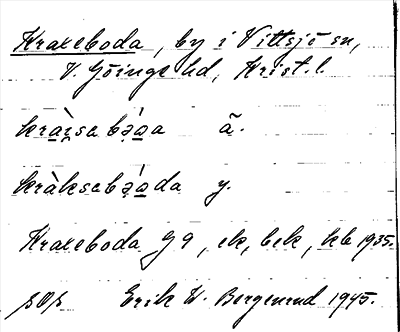 Kraxeboda, by i Vittsjö sn,
V. Göinge hd, Krist. l.
ä.
kràksebə̀ada y.
Kraxeboda G 9, ek, bek, kb 1935.
sos Erik W. Bergenrud 1945.